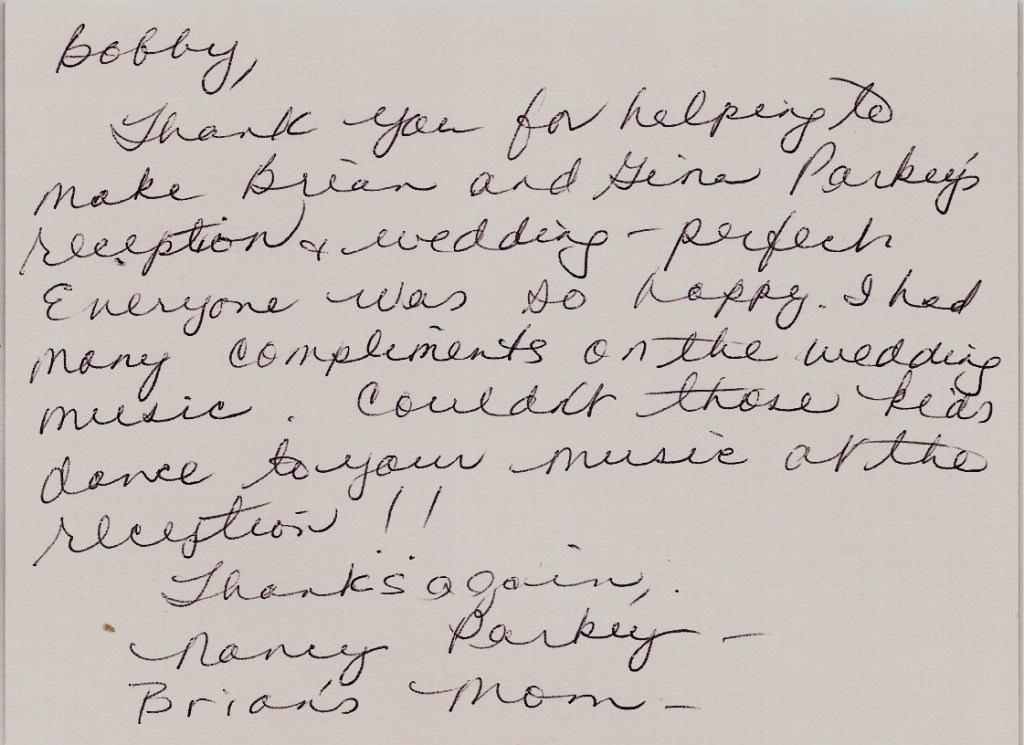 Bobby,
Thank you for helping to
make Brian and Gina Parkey's
reception & wedding - perfect
Everyone was so happy. I had
many compliments on the wedding
music. Couldn't those kids
dance to your music at the
reception !!
Thanks again,
Nancy Parkey -
Brian's Mom -